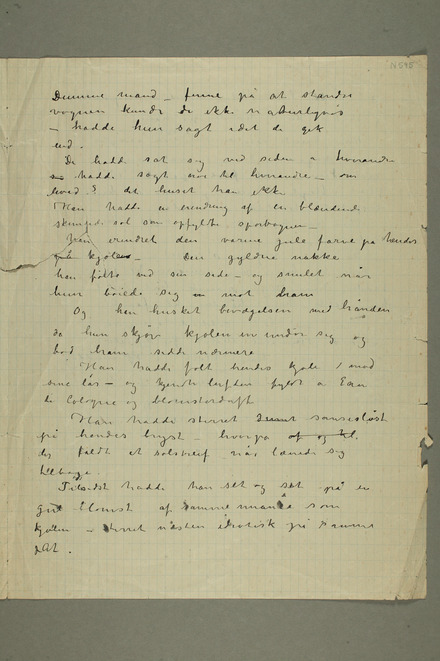 N 595
Dumme mand – finne på at standse
vognen kunde de ikke naturligvis
– hadde hun sagt idet de gik
ud.
De hadde sat sig ved siden a hverandre
hadde sagt noe til hverandre – om
hvad? det husket han ikke
Han hadde en erindring af en blændende
skinnende sol som opfyldte sporvognen –
Han erindret den varme gule farve på hendes
kjole – den gyldne nakke
han følte ved sin side – og smilet når
hun bøiede sig mot ham
Og han husket bevægelsen med hånden
da hun skjøv kjolen ind under sig og
bad ham sidde nærmere
Han hadde følt hendes kjole mod
sine lår – og kjendt luften fyldt a Eau
de Cologne og blomsterduft
Han hadde stirret sanseløst
på hendes bryst – hvorpa
der faldt et solstreif når lænede sig
tilbage.
Tilsidst hadde han set og set på en
gul blomst af samme som
kjolen – stirret næsten idiotisk på samme
gåt.